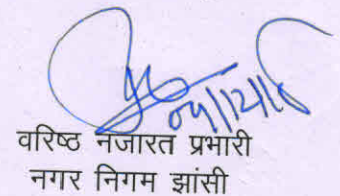 वरिष्ठ नजारत प्रभारी
नगर निगम झांसी